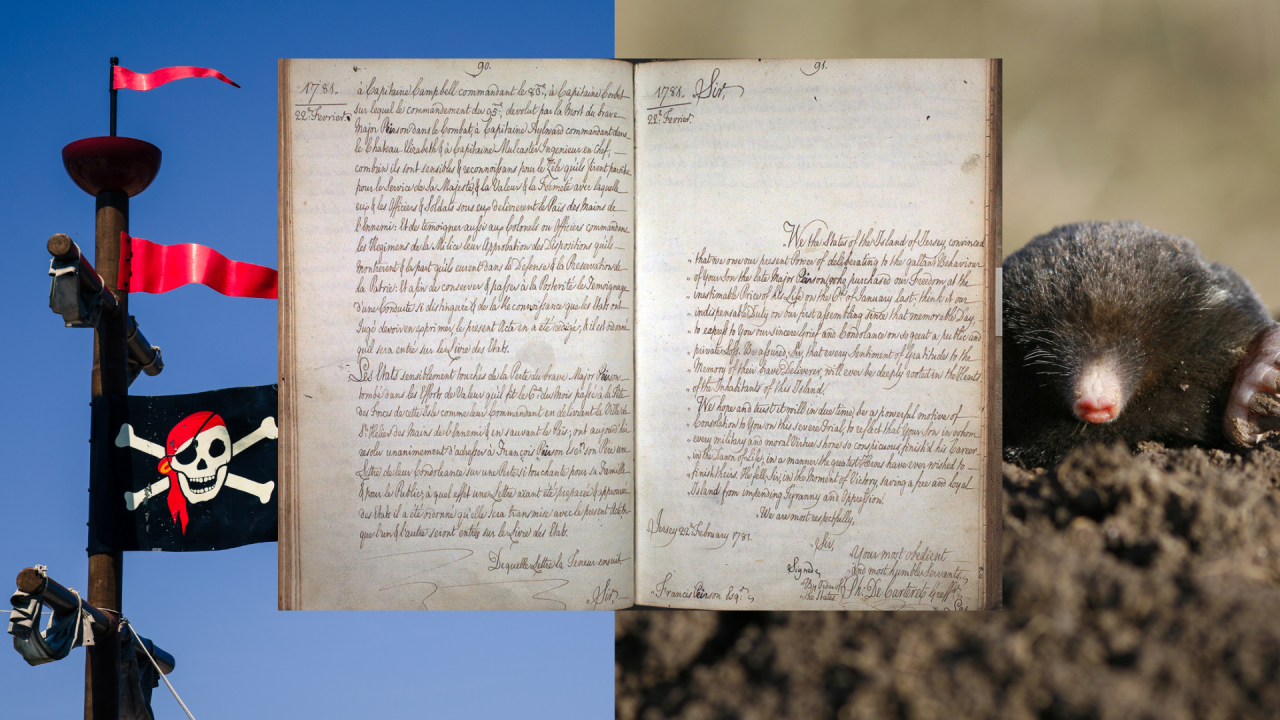 90.
1781.
22e. Fevrier.
à Capitaine Campbell commandant le 83e, à Capitaine Corbet
sur lequel le commandement du 95e, devolut par la Mort du brave
Major Peirson dans le Combat, à Capitaine Aylward commandant dans
le Chateau Elizabeth & à Capitaine Mulcaster Ingenieur en Chef,
combien ils sont sensibles & reconnoissans pour le Zéle qu'ils firent paroitre
pour le Service de Sa Majesté, & la Valeur & la Fermeté avec laquelle
eux & les Officiers & Soldats sous eux delivrerent le Païs des Mains de
l'Ennemi: Et de temoigner aussi aux Colonels ou Officiers commandans
les Regimens de la Milice leur Approbation des Dispositions qu'ils
montrerent & la part qu'ils eurent dans la Defense & la Preservation de
la Patrie: Et afin de conserver & passer à la Posterité le Temoignage
d'une Conduite si distinguée & de la Reconnoissance que les Etats ont
Jugé devoir en exprimer, le present Acte en a été redigé; & il est ordonné
qu'il sera entré sur le Livre des Etats.
Les Etats sensiblement touchés de la Perte du brave Major Peirson
tombé dans les Efforts de Valeur qu'il fit le 6e. du Mois passé à la Tête
des Forces de cette Isle comme leur Commandant en delivrant la Ville de
St. Hélier des Mains de l'Ennemi & en sauvant le Païs; ont aujourdhui
resolu unanimement d'adresser à François Peirson Esqr. son Père une
Lettre de leur Condoleance sur une Perte si touchante pour la Famille
& pour le Public; à quel effet une Lettre aïant été preparée & approuvée
des Etats il a été ordonné qu'elle sera transmise avec le present Acte &
que l'un & l'autre seront entrés sur le Livre des Etats.
De quelle Lettre la Teneur ensuit
Sir
91.
1781.
22e. Fevrier.
Sir,
We the States of the Island of Jersey, convinced
that we owe our present Power of deliberating to the gallant Behaviour
of Your Son the late Major Peirson, who purchased our Freedom at the
inestimable Price of his Life on the 6th. of January last; think it our
indispensable Duty on our first assembling since that memorable Day,
to express to You our sincere Grief and Condolance on so great a public and
private Loss. Be assured, Sir, that every Sentiment of Gratitude to the
Memory of their brave Deliverer, will ever be deeply rooted in the Hearts
of the Inhabitants of this Island.
We hope and trust it will in due time, be a powerful motive of
Consolation to You on this severe Trial, to reflect that Your Son in whom
every military and moral Virtue shone so conspicuous, finish'd his Career
in the Dawn of Life, in a manner the greatest Heros have ever wished to
finish theirs. He fell, Sir, in the Moment of Victory, having a free and loyal
Island from impending Tyranny and Oppression.
We are most respectfully,
Jersey 22d. February 1781.
Sir,
Your most obedient
and most humble Servants,
Signed,
By order of the States
Ph: De Carteret Greffr.
Francis Peirson Esqr.